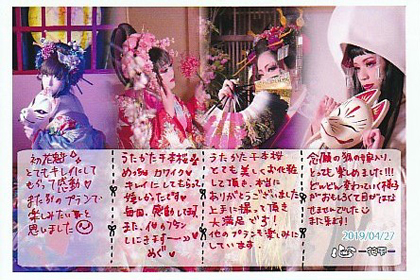 初花魁
とてもキレイにして
もらって感動
また別のプランで
楽しみたい事を
思いました
うたかた千本桜
めっちゃカワイク
キレイにしてもらって
嬉しかったです
毎回、感動します
また、他のプラン
しにきます
めぐ
うたかた千本桜
とても美しくお化粧
して頂き、本当に
ありがとうございました
上手に撮って頂き
大満足です!
他のプランも楽しみに
しています。
念願の狐の嫁入り、
とっても楽しめました!!!
どんどん変わっていく様子
がおもしろくて目がはな
せませんでした
また来ます!
2019/04/27
心